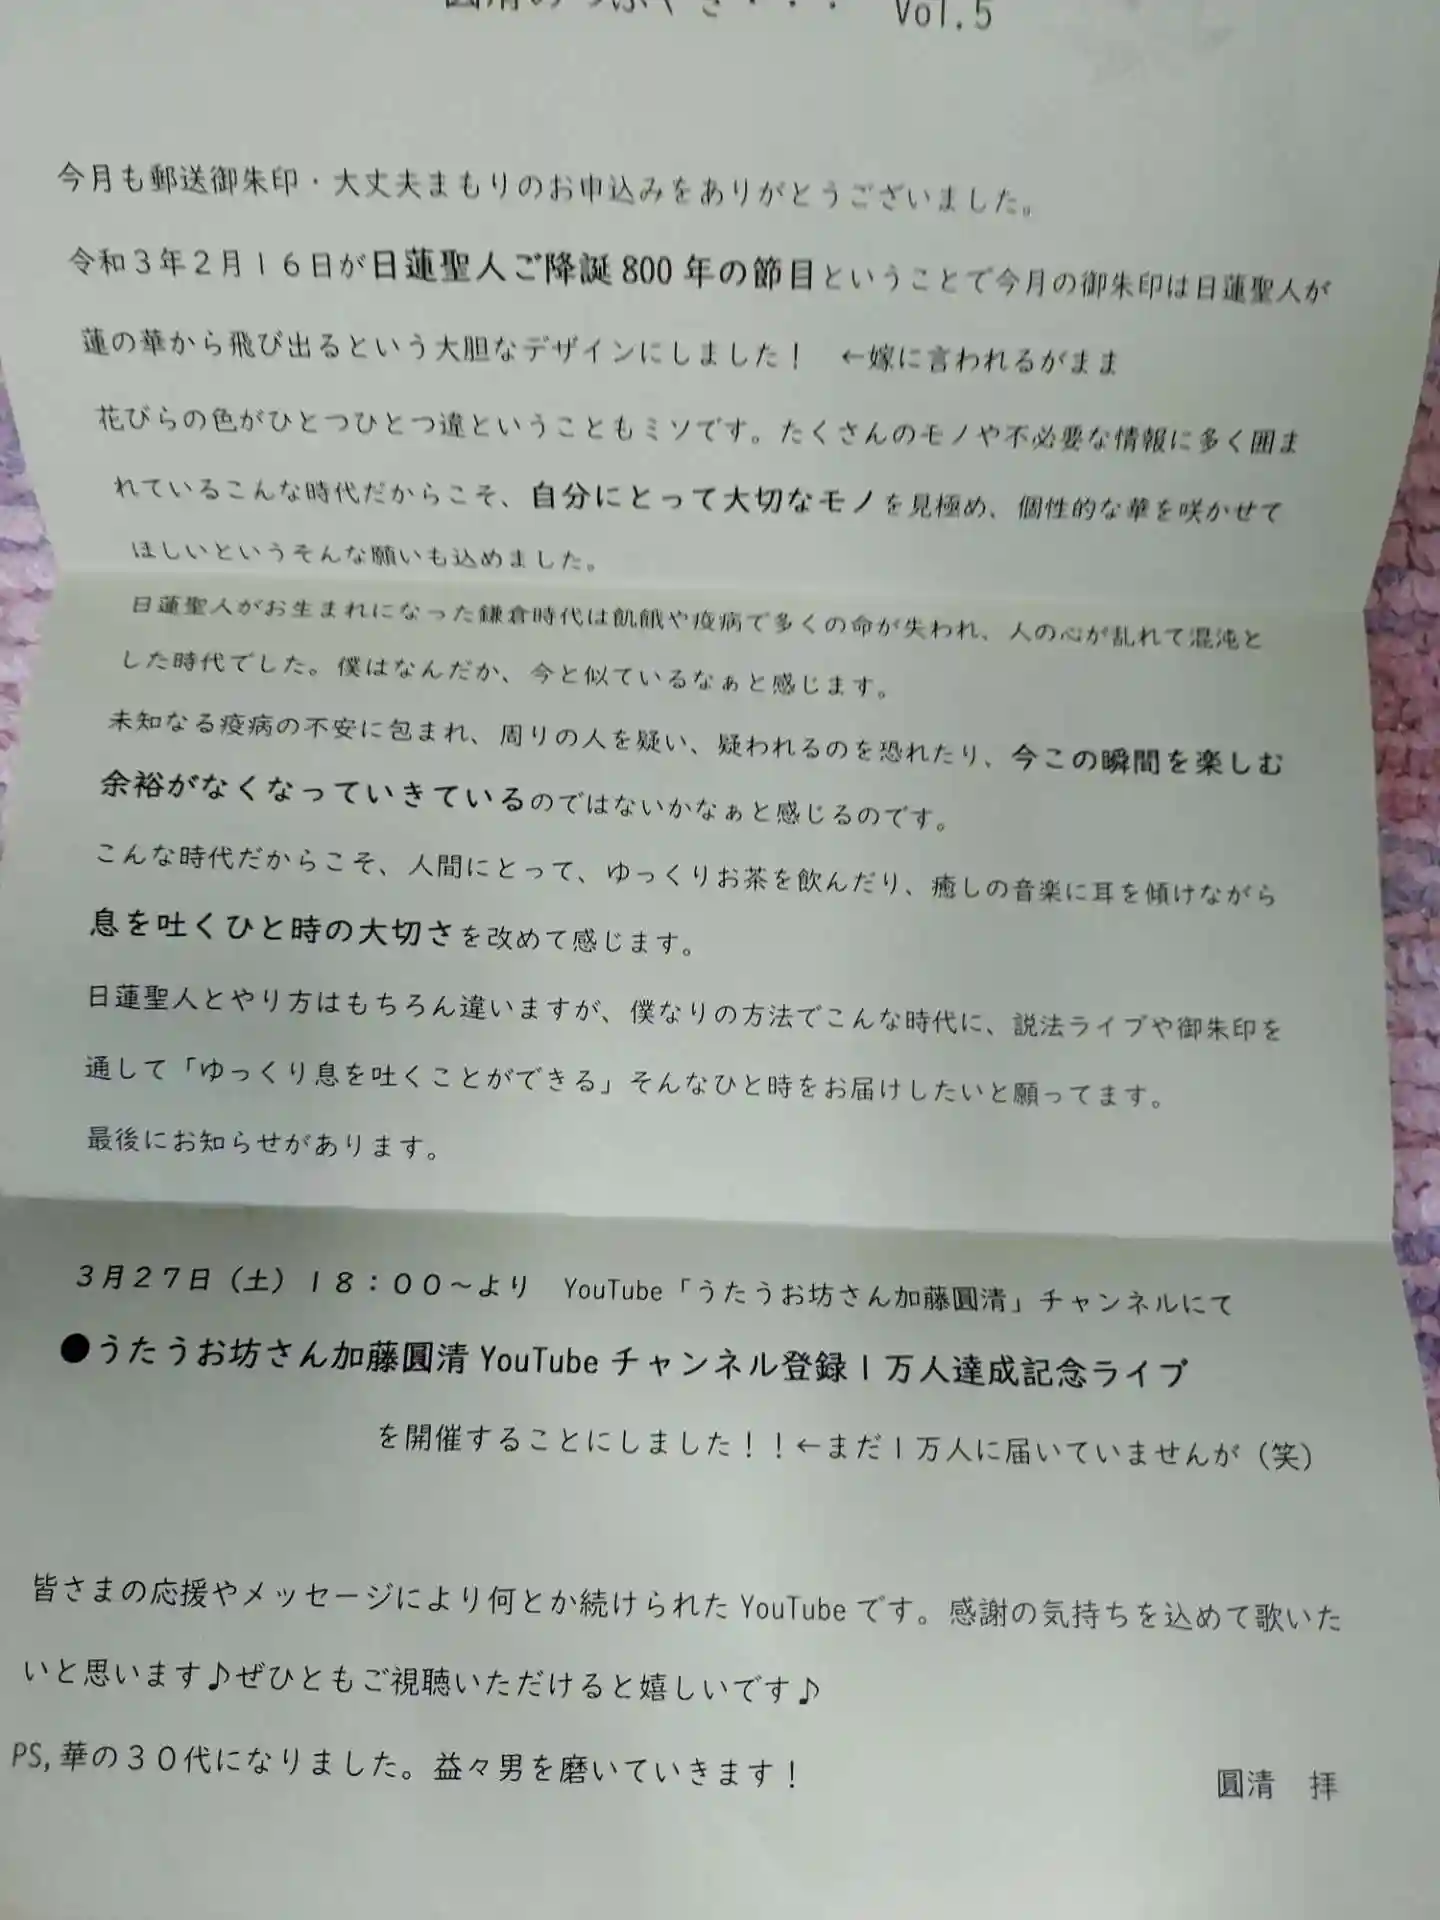 圓清のつぶやき・・・　Vol.5
今月も郵送御朱印・大丈夫まもりのお申込みをありがとうございました。
令和３年２月１６日が日蓮聖人ご降誕800年の節目ということで今月の御朱印は日蓮聖人が
蓮の華から飛び出るという大胆なデザインにしました！　←嫁に言われるがまま
花びらの色がひとつひとつ違ということもミソです。たくさんのモノや不必要な情報に多く囲ま
れているこんな時代だからこそ、自分にとって大切なモノを見極め、個性的な華を咲かせて
ほしいというそんな願いも込めました。
日蓮聖人がお生まれになった鎌倉時代は飢餓や疫病で多くの命が失われ、人の心が乱れて混沌と
した時代でした。僕はなんだか、今と似ているなぁと感じます。
未知なる疫病の不安に包まれ、周りの人を疑い、疑われるのを恐れたり、今この瞬間を楽しむ
余裕がなくなっていきているのではないかなぁと感じるのです。
こんな時代だからこそ、人間にとって、ゆっくりお茶を飲んだり、癒しの音楽に耳を傾けながら
息を吐くひと時の大切さを改めて感じます。
日蓮聖人とやり方はもちろん違いますが、僕なりの方法でこんな時代に、説法ライブや御朱印を
通して「ゆっくり息を吐くことができる」そんなひと時をお届けしたいと願ってます。
最後にお知らせがあります。
３月２７日（土）１８：００～より　YouTube「うたうお坊さん加藤圓清」チャンネルにて
●うたうお坊さん加藤圓清YouTubeチャンネル登録１万人達成記念ライブ
を開催することにしました！！←まだ１万人に届いていませんが（笑）
皆さまの応援やメッセージにより何とか続けられたYouTubeです。感謝の気持ちを込めて歌いた
いと思います♪ぜひともご視聴いただけると嬉しいです♪
PS,華の３０代になりました。益々男を磨いていきます！
圓清　拝